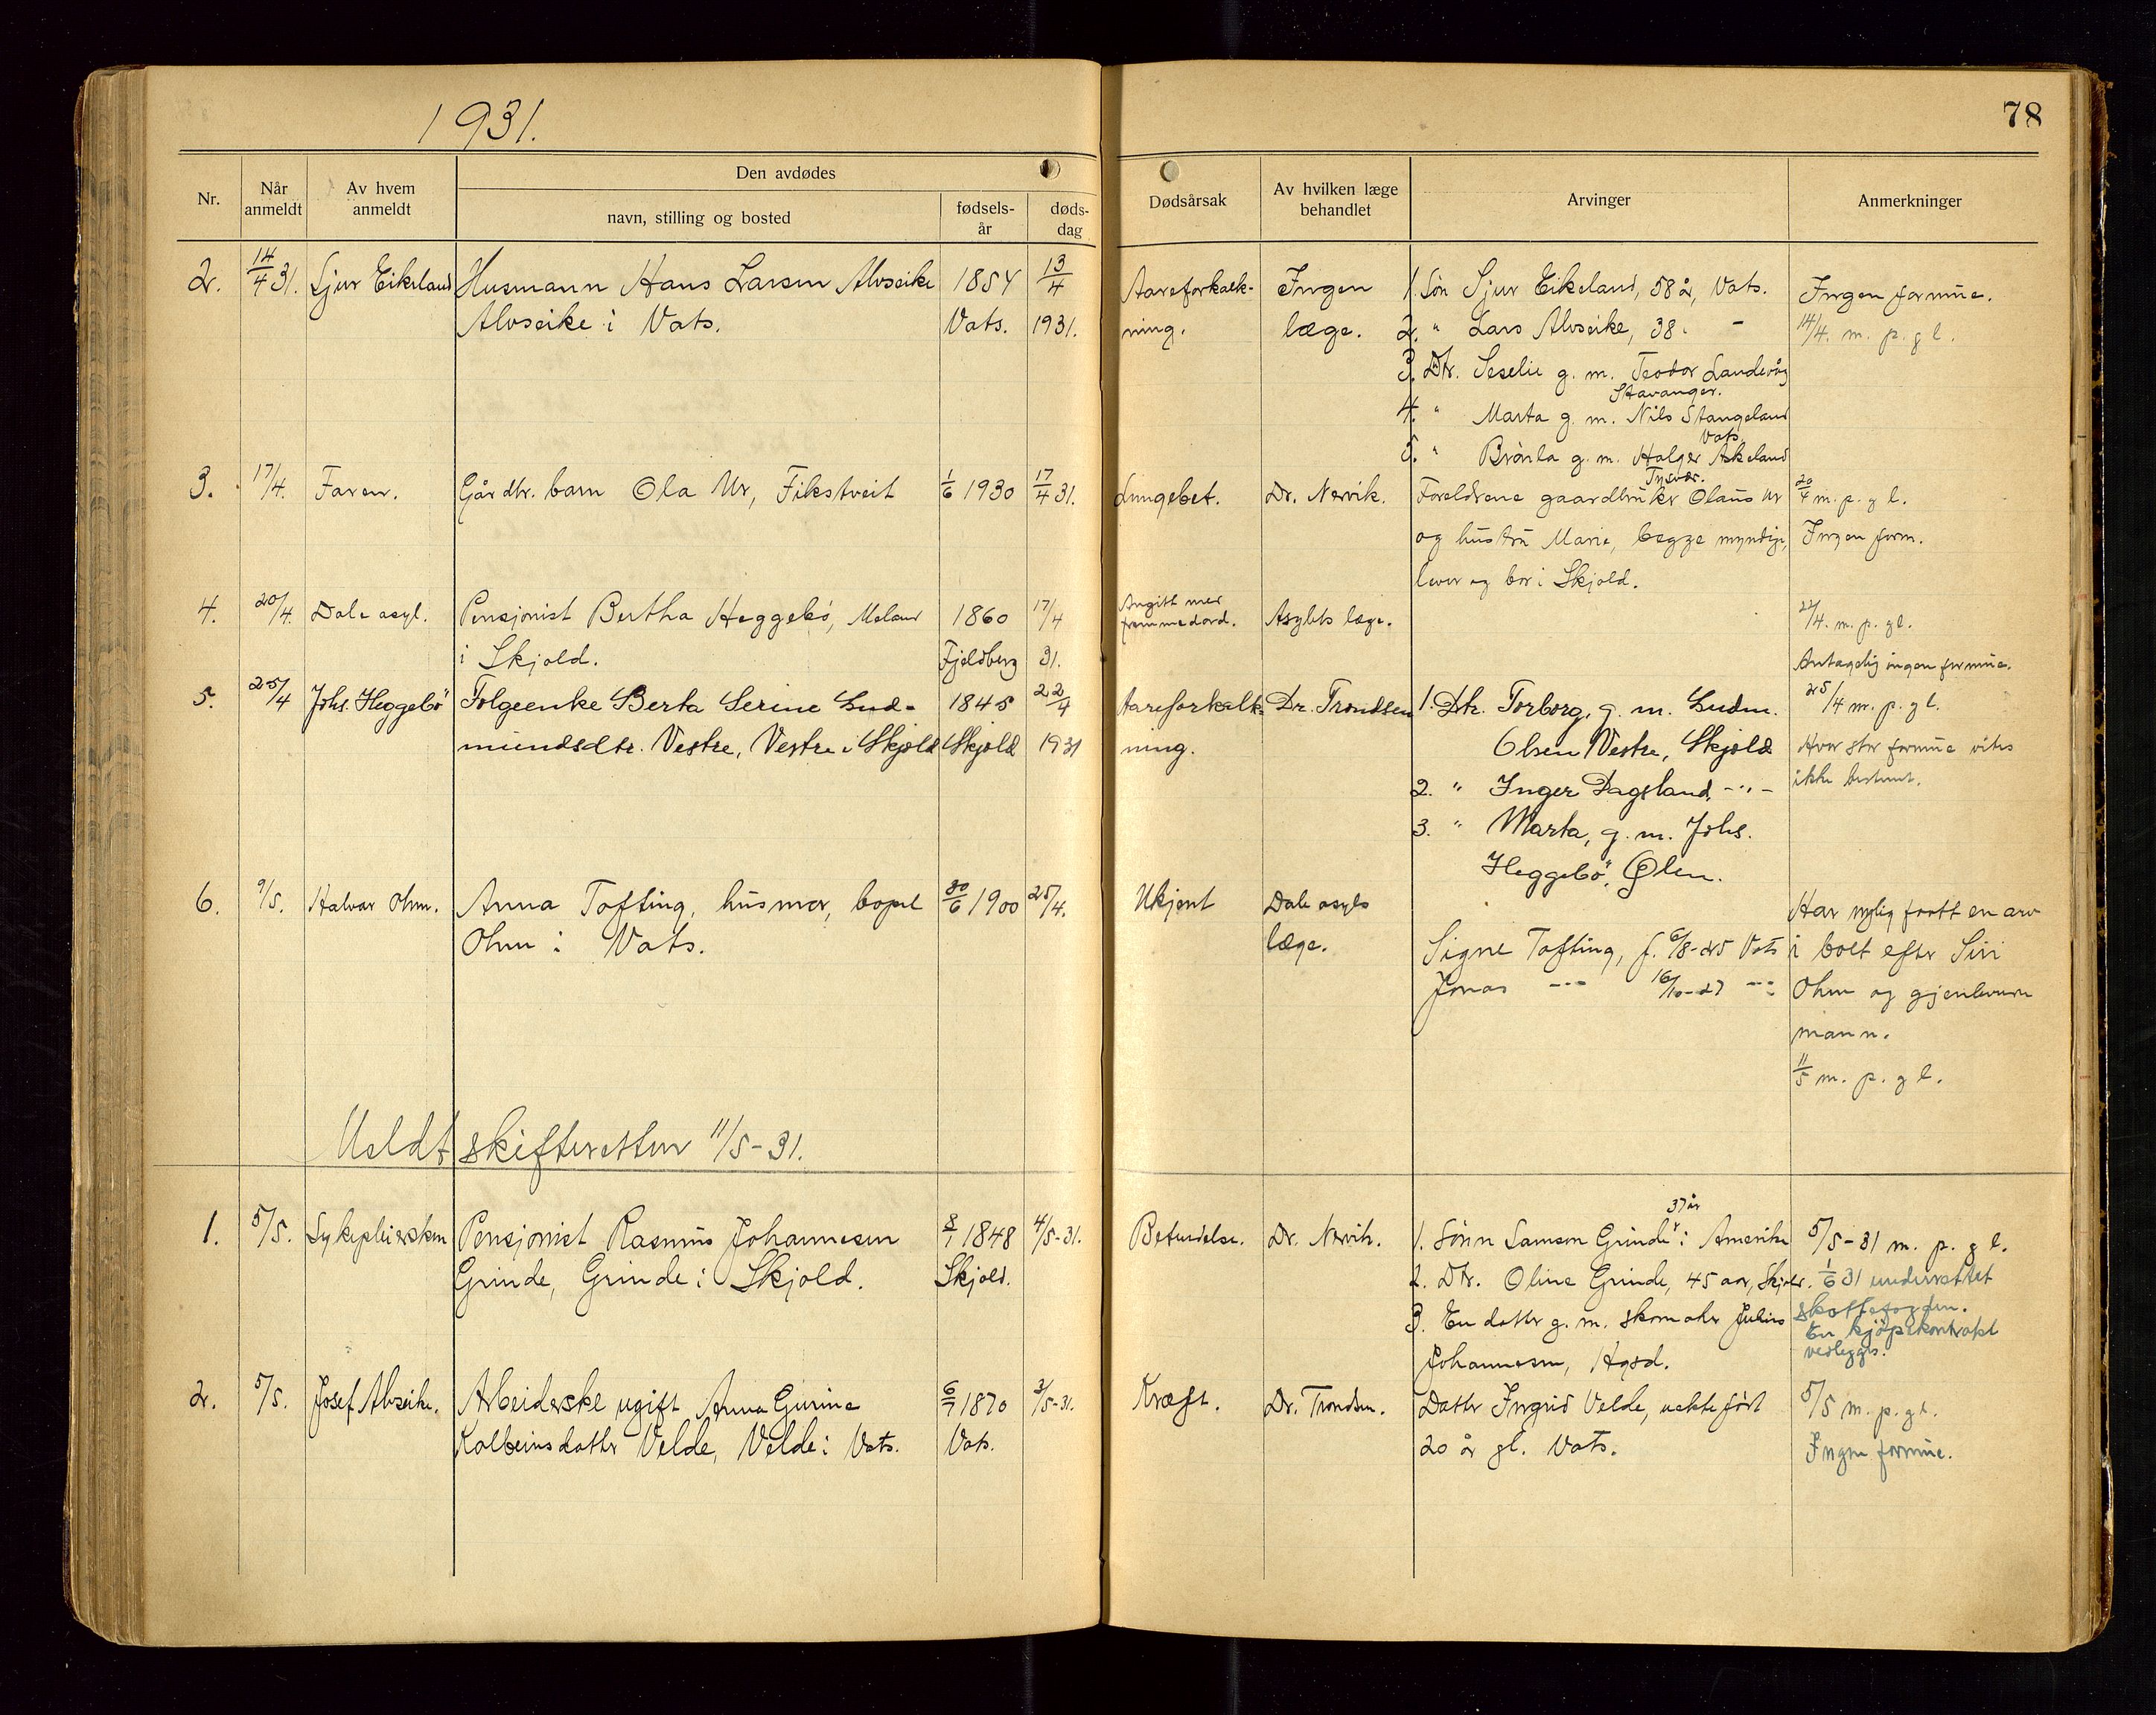 1931.
78
Nr.
Når anmeldt
Av hvem anmeldt
Den avdødes
navn, stilling og bosted
fødsels-år
døds-dag
Dødsårsak
Av hvilken læge behandlet
Arvinger
Anmerkninger
2. 14/4 31. Sjur Eikeland Husmann Hans Larsen Alvseike 1854 13/4
Alvseike i Vats. Vats. 1931.
Aareforkalk- Ingen 1. Søn Sjur Eikeland, 58 år, Vats. Ingen formue.
ning. læge. 2. " Lars Alvseike, 38. - 14/4. m. p. g l.
3. Dtr. Seselie g. m. Teodor Landevåg
Stavanger.
4. " Marta g. m. Nils Stangeland
Vats.
5. " g. m. Holger Askeland
Tysvær.
3. 17/4. Faren. Gårdbr. barn Ola Ur, Fikstveit 1/6 1930 17/4 31.
Lungebet. Dr. Nervik. Foreldrene gaardbruker Olaus Ur 20/4 m. p. g l.
og hustru Marie, begge myndige, Ingen form.
lever og bor i Skjold.
4. 20/4. Dale asyl. Pensjonist Bertha Heggebø, Meland 1860 17/4
i Skjold. Fjeldberg 31.
Angitt med
fremmedord. Asylets læge. 22/4. m. p. gl.
Antagelig ingen formue.
5. 25/4 Johs. Heggebö Folgeenke Berta Serine Gud- 1845 22/4
mundsdtr. Vestre, Vestre i Skjold Skjold 1931
Aareforkalk- Dr. Trondsen 1. Dtr. Torborg, g. m. Gudm. 25/4 m. p. g l.
ning. Olsen Vestre, Skjold Hvor stor formue vites
2. " Inger Dagsland, -"- ikke bestemt.
3. " Marta, g. m. Johs.
Heggebö, Ølen.
6. 9/5. Halvar Ohm. Anna Tofting, husmor, bopel 30/6 1900 25/4.
Ohm i Vats.
Ukjent Dale asyls Har nylig faatt en arv
læge. Signe Tofting, f. 6/8-25 Vats i boet efter Siri
Jonas -"- 16/10-27 -"- Ohm og gjenlevende
mann.
11/5 m. p. g l.
Meldt skifteretten 11/5-31.
1. 5/5. Sykepleiersken Pensjonist Rasmus Johannesen 8/7 1848 4/5-31.
Grinde, Grinde i Skjold. Skjold.
37 år
Betendelse. Dr. Nervik. 1. Sønn Samson Grinde i Amerika 5/5-31 m. p. g l.
2. Dtr. Oline Grinde, 45 aar, Skjold. 1/6 31 underrettet
skattefogden.
3. En datter g. m. skomaker Julius En kjøpekontrakt
Johannesen, Hgsd. vedlegges.
2. 5/5. Josef Alvseike. Arbeiderske ugift Anna Gurine 6/7 1870 3/5-31.
Kolbeinsdatter Velde, Velde i Vats. Vats.
Kræft. Dr. Trondsen. Datter Ingrid Velde, uekte født 5/5 m. p. gl.
20 år gl. Vats. Ingen formue.